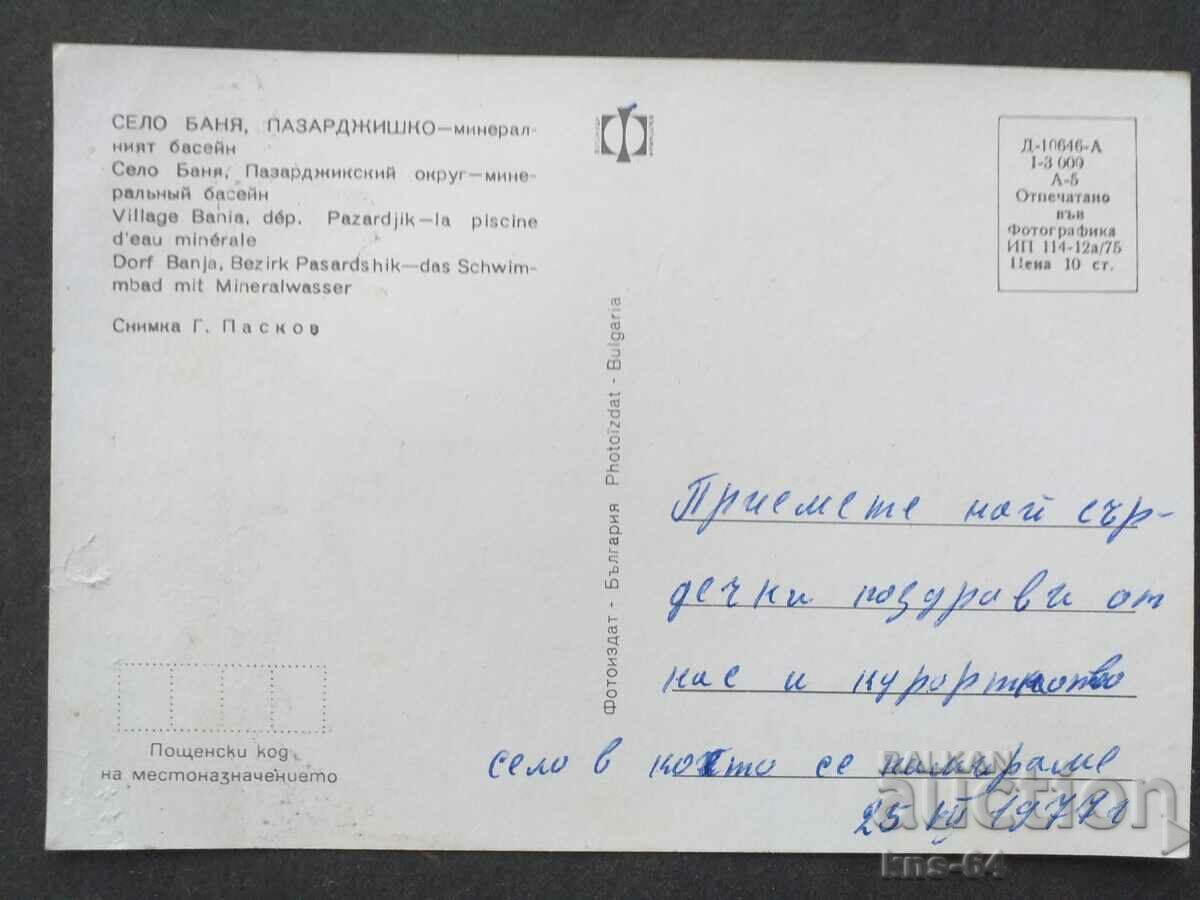 СЕЛО БАНЯ, ПАЗАРДЖИШКО—минерал-
ният басейн
Село Баня, Пазарджикский округ—мине-
ральный басейн
Village Bania, dép. Pazardjik—la piscine
d'eau minérale
Dorf Banja, Bezirk Pasardshik—das Schwim-
mbad mit Mineralwasser
Снимка Г. Пасков
Пощенски код
на местоназначението
Фотоиздат - България Photoïzdat - Bulgaria
Д-10646-А
1-3 000
А-5
Отпечатано
във
Фотографика
ИП 114-12а/75
Цена 10 ст.
Приемете най сър-
дечни поздрави от
нас и курортното
село в което се намираме
25 VII 1977г
BALKAN
auction
kns-64